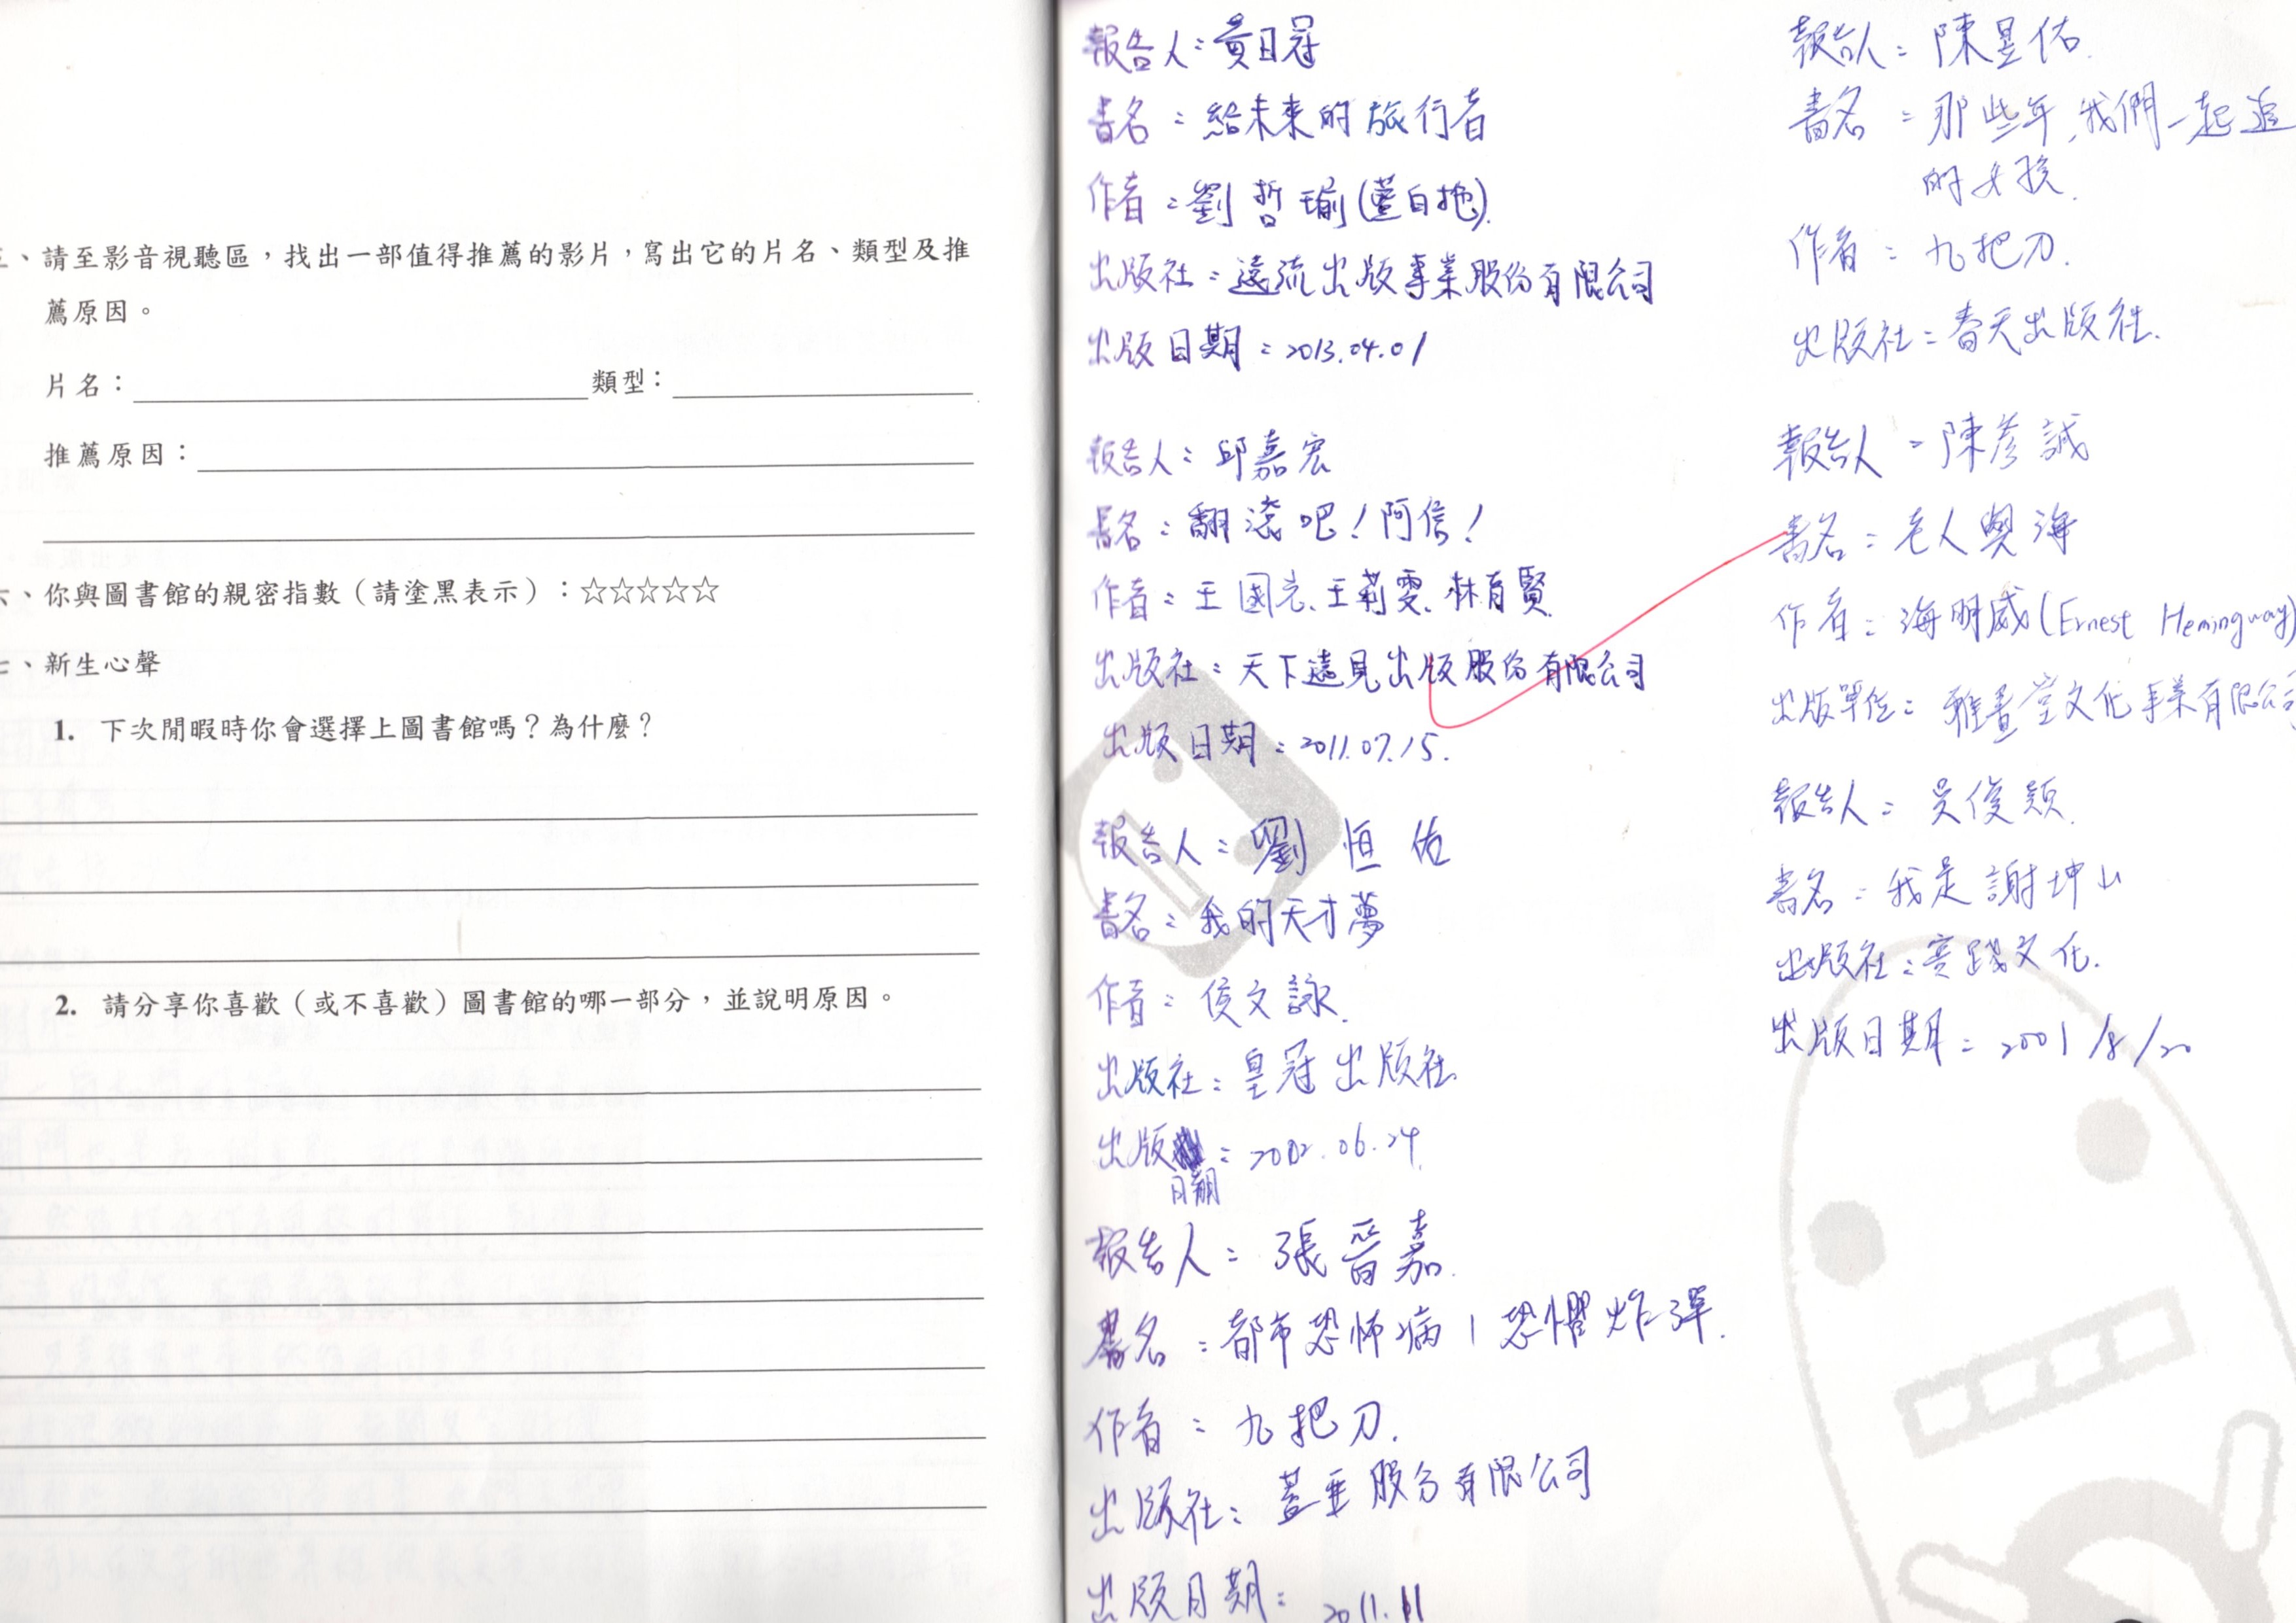 、請至影音視聽區，找出一部值得推薦的影片，寫出它的片名、類型及推
薦原因。
片名： 類型：
推薦原因：
六、你與圖書館的親密指數（請塗黑表示）：☆☆☆☆☆
七、新生心聲
1. 下次閒暇時你會選擇上圖書館嗎？為什麼？
2. 請分享你喜歡（或不喜歡）圖書館的哪一部分，並說明原因。
報告人：黃日冠
書名：給未來的旅行者
作者：劉哲瑜(藍白拖).
出版社：遠流出版事業股份有限公司
出版日期：2013.04.01
報告人：邱嘉宏
書名：翻滾吧！阿信！
作者：王國光、王莉雯、林育賢
出版社：天下遠見出版股份有限公司
出版日期：2011.07.15.
報告人：劉恒佑
書名：我的天才夢
作者：侯文詠.
出版社：皇冠出版社
出版日期：2002.06.24.
報告人：張晉嘉.
書名：都市恐怖病|恐懼炸彈.
作者：九把刀.
出版社：蓋亞股份有限公司
出版日期：2011.11
報告人：陳昱佑.
書名：那些年,我們一起追
的女孩.
作者：九把刀.
出版社：春天出版社.
報告人：陳彥誠
書名：老人與海
作者：海明威(Ernest Hemingway)
出版單位：雅書堂文化事業有限公司
報告人：吳俊穎.
書名：我是謝坤山
出版社：實踐文化.
出版日期：2001/8/20